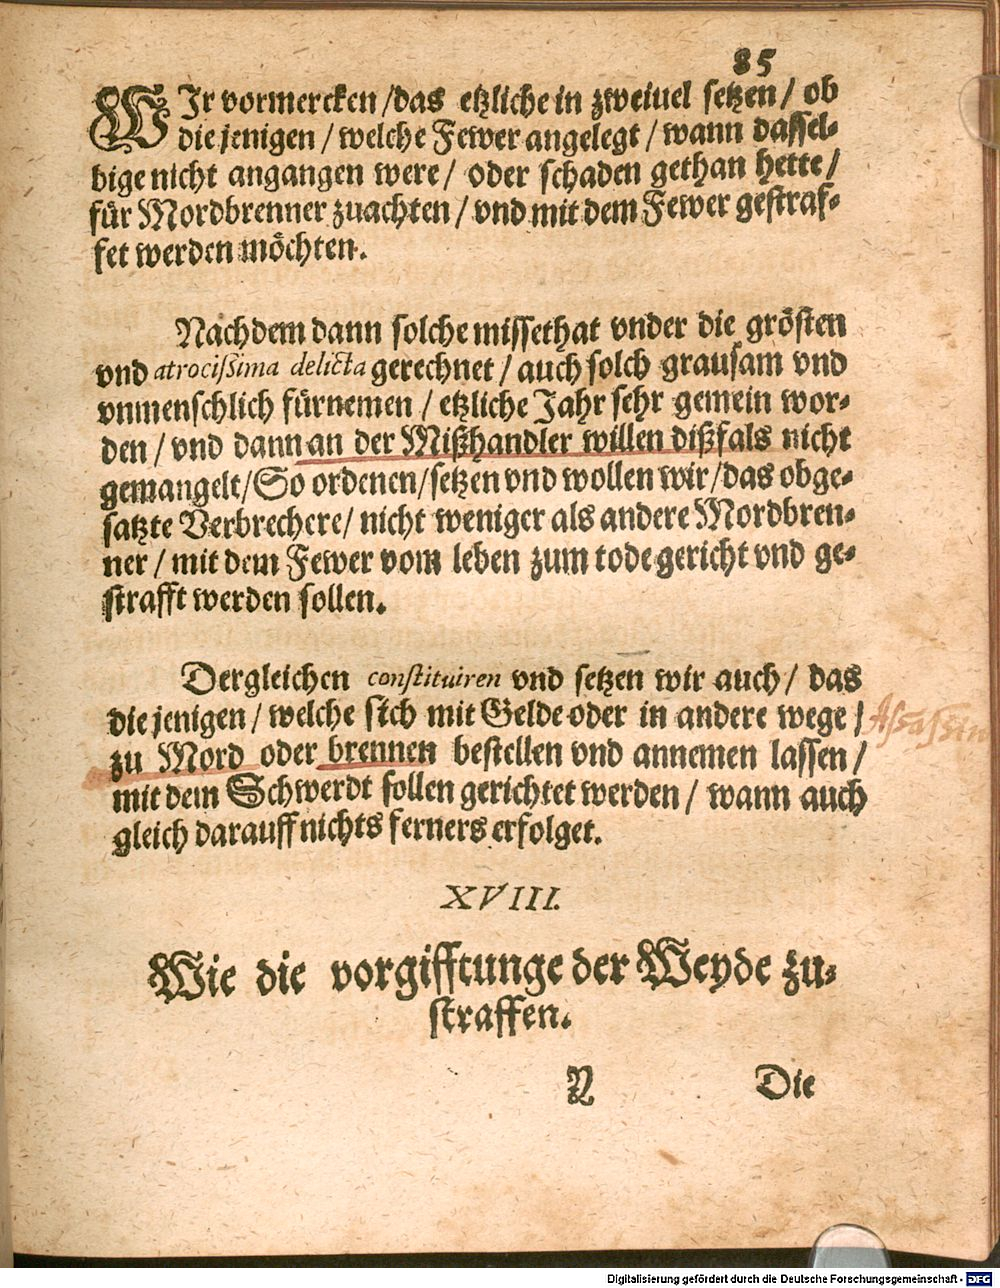 85
WIr vormercken / das etzliche in zweiuel setzen / ob
die jenigen / welche Fewer angelegt / wann dassel-
bige nicht angangen were / oder schaden gethan hette /
für Mordbrenner zuachten / vnd mit dem Fewer gestraf-
fet werden möchten.
Nachdem dann solche missethat vnder die grösten
vnd atrocißima delicta gerechnet / auch solch grausam vnd
vnmenschlich fürnemen / etzliche Jahr sehr gemein wor-
den / vnd dann an der Mißhandler willen dißfals nicht
gemangelt / So ordenen / setzen vnd wollen wir / das obge-
satzte Verbrechere / nicht weniger als andere Mordbren-
ner / mit dem Fewer vom leben zum tode gericht vnd ge-
strafft werden sollen.
Dergleichen constituiren vnd setzen wir auch / das
die jenigen / welche sich mit Gelde oder in andere wege / Assassin
zu Mord oder brennen bestellen vnd annemen lassen /
mit dem Schwerdt sollen gerichtet werden / wann auch
gleich darauff nichts ferners erfolget.
XVIII.
Wie die vorgifftunge der Weyde zu-
straffen.
N Die
Digitalisierung gefördert durch die Deutsche Forschungsgemeinschaft - DFG